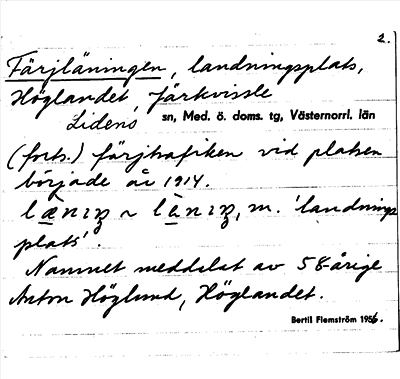 2.
Färjläningen, landningsplats,
Höglandet, Järkvissle
Lidens sn, Med. ö. doms. tg, Västernorrl. län
(forts.) färjtrafiken vid platsen
började år 1914.
~ m. 'landnings
plats'.
Namnet meddelat av 58-årige
Anton Höglund, Höglandet.
Bertil Flemström 1956.